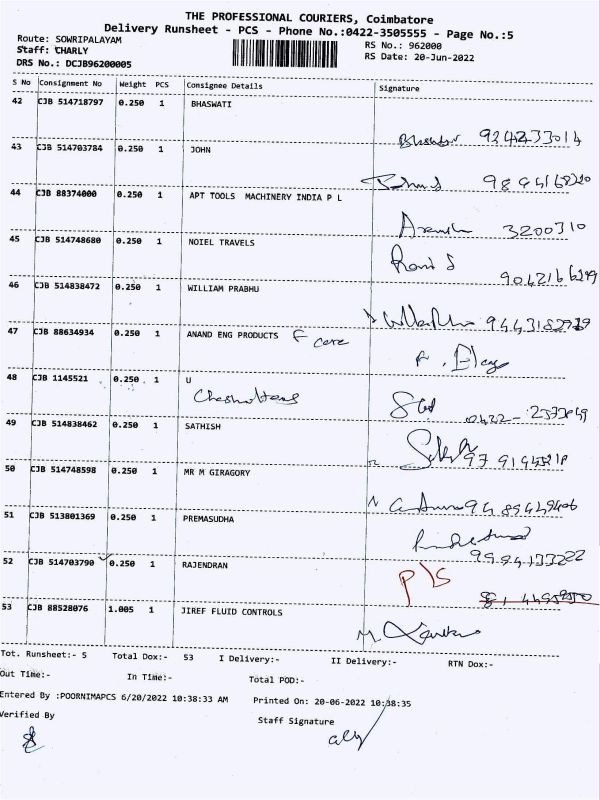 THE PROFESSIONAL COURIERS, Coimbatore
Delivery Runsheet - PCS - Phone No.:0422-3505555 - Page No.:5
Route: SOWRIPALAYAM
Staff: CHARLY
DRS No.: DCJB96200005
RS No.: 962000
RS Date: 20-Jun-2022
S No Consignment No Weight PCS Consignee Details Signature
42 CJB 514718797 0.250 1 BHASWATI
43 CJB 514703784 0.250 1 JOHN
44 CJB 88374000 0.250 1 APT TOOLS MACHINERY INDIA P L
3200310
45 CJB 514748680 0.250 1 NOIEL TRAVELS
46 CJB 514838472 0.250 1 WILLIAM PRABHU
47 CJB 88634934 0.250 1 ANAND ENG PRODUCTS
48 CJB 1145521 0.250 1 U
49 CJB 514838462 0.250 1 SATHISH
50 CJB 514748598 0.250 1 MR M GIRAGORY
51 CJB 513801369 0.250 1 PREMASUDHA
9994133222
52 CJB 514703790 0.250 1 RAJENDRAN
P/S
53 CJB 88528076 1.005 1 JIREF FLUID CONTROLS
Tot. Runsheet:- 5 Total Dox:- 53 I Delivery:- II Delivery:- RTN Dox:-
Out Time:- In Time:- Total POD:-
Entered By :POORNIMAPCS 6/20/2022 10:38:33 AM Printed On: 20-06-2022 10:38:35
Verified By Staff Signature